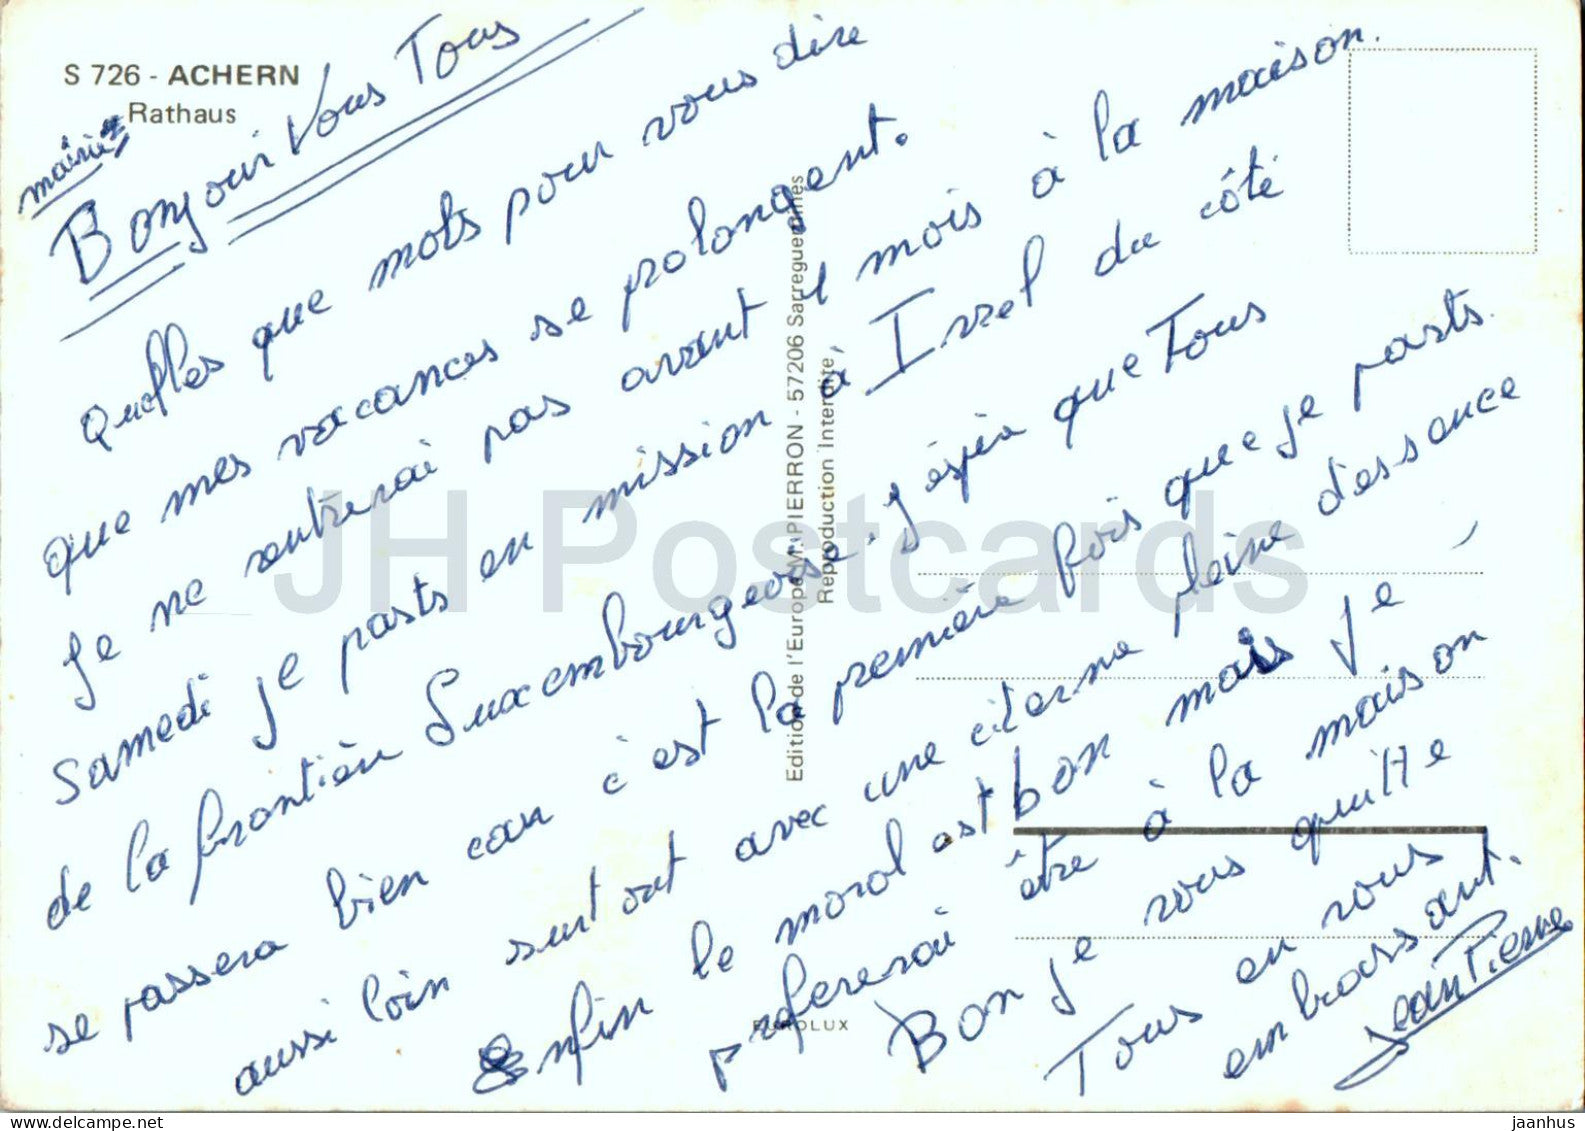 S 726 - ACHERN
Rathaus
mairie
Bonjour Vous Tous
Quelles que mots pour vous dire
que mes vacances se prolongent.
Je ne rentrerai pas avant 1 mois à la maison.
Samedi je parts en mission à Irrel du côté
de la frontière Luxembourgeoise. J'éspèr que Tous
se passera bien car c'est la première fois que je parts
aussi loin surtout avec une citerne pleine d'essence
Enfin le moral est bon mais Je
prefererai être à la maison
Bon Je vous quitte
Tous en vous
embrassant.
Jean Pierre
Edition de l'Europe M. PIERRON - 57206 Sarreguemines
Reproduction Interdite
EUROLUX
JH Postcards
jaanhus @ HipStamp.com